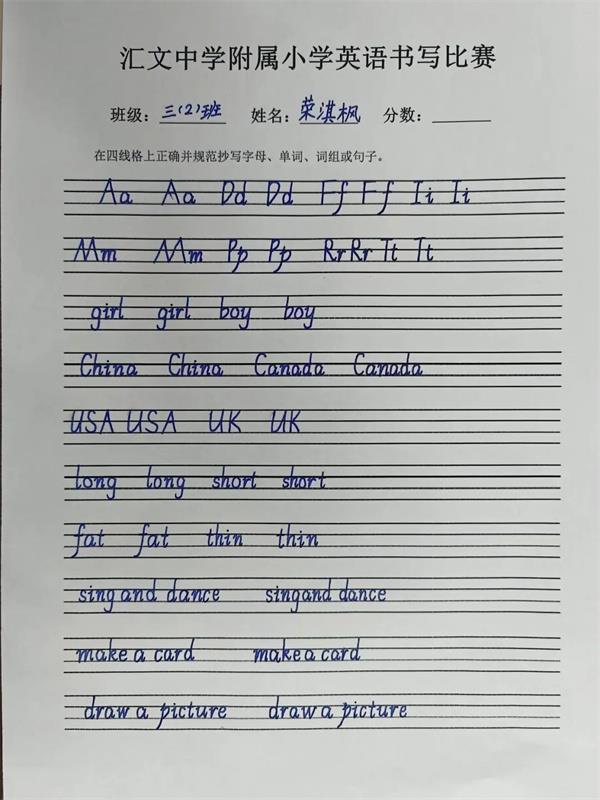 汇文中学附属小学英语书写比赛
班级: 三(2)班 姓名: 荣淇枫 分数:
在四线格上正确并规范抄写字母、单词、词组或句子。
Aa Aa Dd Dd Ff Ff Ii Ii
Mm Mm Pp Pp Rr Rr Tt Tt
girl girl boy boy
China China Canada Canada
USA USA UK UK
long long short short
fat fat thin thin
sing and dance sing and dance
make a card make a card
draw a picture draw a picture